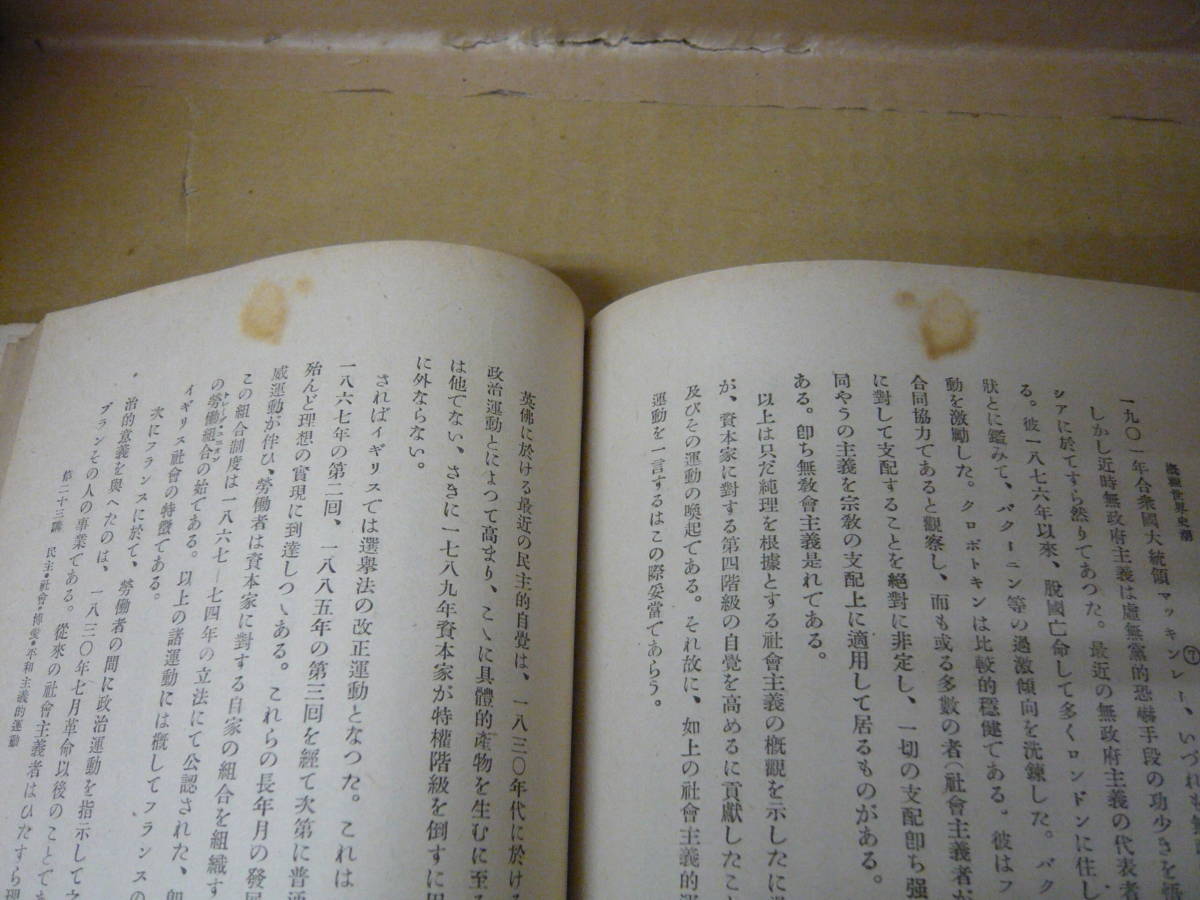 概觀世界史潮
一九〇一年合衆國大統領マッキンレー、いづれも
しかし近時無政府主義は虛無黨的恐嚇手段の功少きを悟
シアに於てすら然りであつた。最近の無政府主義の代表者
狀とに鑑みて、バクーニン等の過激傾向を洗鍊した。バク
る。彼一八七六年以來、脫國亡命して多くロンドンに住し
動を激勵した。クロポトキンは比較的穩健である。彼はフ
合同協力であると觀察し、而も或る多數の者(社會主義者が
に對して支配することを絕對に非定し、一切の支配卽ち强
同やうの主義を宗敎の支配上に適用して居るものがある。
ある。卽ち無敎會主義是れである。
以上は只だ純理を根據とする社會主義の槪觀を示したに
が、資本家に對する第四階級の自覺を高めるに貢獻したこと
及びその運動の喚起てある。それ故に、如上の社會主義的
運動を一言するはこの際妥當であらう。
英佛に於ける最近の民主的自覺は、一八三〇年代に於ける
政治運動とによつて高まり、こゝに具體的產物を生むに至
は他でない、さきに一七八九年資本家が特權階級を倒すに
に外ならない。
さればイギリスでは選擧法の改正運動となつた。これは
一八六七年の第二回、一八八五年の第三回を經て次第に普通
殆んど理想の實現に到達しつゝある。これらの長年月の發展
威運動が伴ひ、勞働者は資本家に對する自家の組合を組織す
この組合制度は一八六七―七四年の立法にて公認された、卽
の勞働組合の始である。以上の諸運動には槪してフランスの
イギリス社會の特徵である。
次にフランスに於て、勞働者の間に政治運動を指示して
治的意義を與へたのは、一八三〇年七月革命以後のことであ
ブランその人の事業である。從來の社會主義者はひたすら理
第二十三講 民主・社會・博愛・平和主義的運動